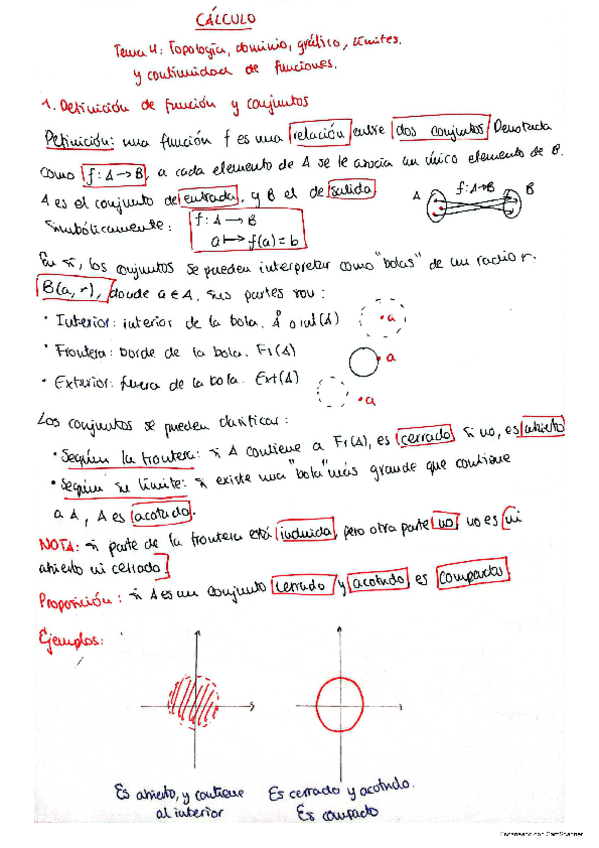 CÁLCULO
Tema 4: Topología, dominio, gráfico, límites.
y continuidad de funciones.
1. Definición de función y conjuntos
Definición: una función f es una relación entre dos conjuntos Denotada
como f: A → B, a cada elemento de A se le asocia un único elemento de B.
A es el conjunto de entrada, y B el de salida
A f: A→B B
Simbólicamente: f: A → B
a ↦ f(a) = b
En, los conjuntos se pueden interpretar como "bolas" de un radio r.
B(a, r), donde a ∈ A. Sus partes son:
• Interior: interior de la bola. Å o int(A)
• a
• Frontera: borde de la bola. Fr(A)
• a
• Exterior: fuera de la bola. Ext(A)
• a
Los conjuntos se pueden clasificar:
• Según la frontera: si A contiene a Fr(A), es cerrado si no, es abierto
• Según su límite: si existe una "bola" más grande que contiene
a A, A es acotado.
NOTA: si parte de la frontera está incluida, pero otra parte no no es ni
abierto ni cerrado.
Proposición: si A es un conjunto cerrado y acotado es compacto
Ejemplos:
Es abierto, y contiene
al interior
Es cerrado y acotado.
Es compacto
Escaneado con CamScanner